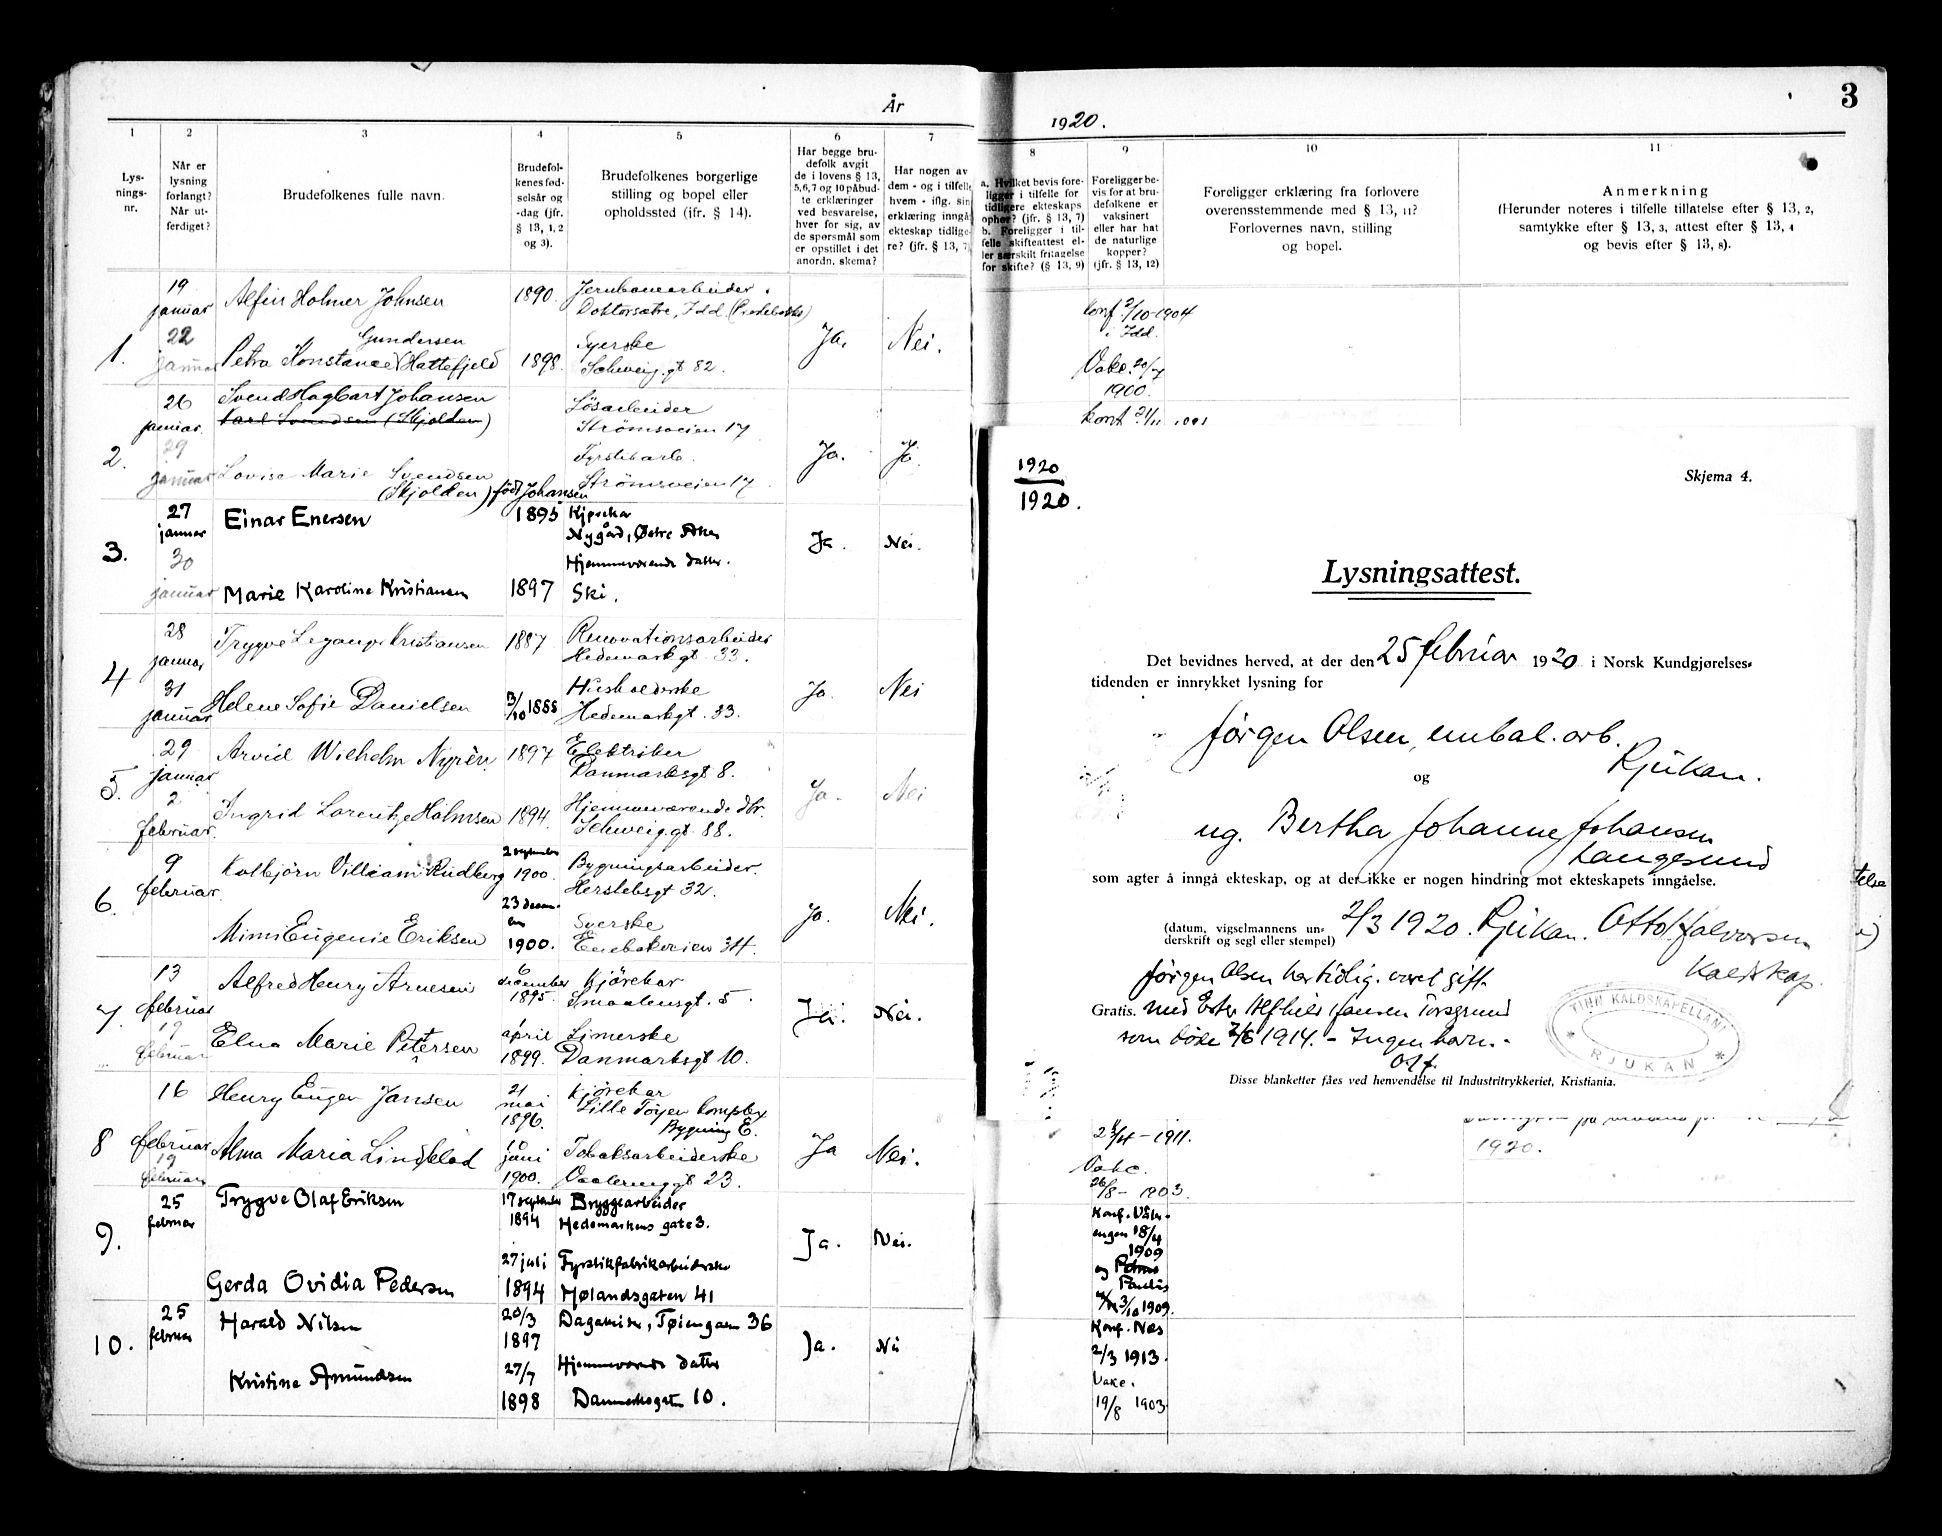 År
1920.
3
1
2
3
4
5
6
7
8
9
10
11
Lys-
nings-
nr.
Når er
lysning
forlangt?
Når ut-
ferdiget?
Brudefolkenes fulle navn.
Brudefol-
kenes fød-
selsår og
-dag (jfr.
§ 13, 1, 2
og 3).
Brudefolkenes borgerlige
stilling og bopel eller
opholdssted (ifr. § 14).
Har begge bru-
defolk avgit
de i lovens § 13,
5,6,7 og 10 påbud-
te erklæringer
ved besvarelse,
hver for sig, av
de spørsmål som
er opstillet i det
anordn. skema?
Har nogen av
dem - og i tilfelle
hvem - iflg. sin
erklæring inngåt
ekteskap tidlige-
re? (jfr. § 13, 7)
a. Hvilket bevis fore-
ligger i tilfelle for
tidligere ekteskaps
ophør? (jfr. § 13, 7)
b. Foreligger i til-
felle skifteattest el-
ler særskilt fritagelse
for skifte? (§ 13, 9)
Foreligger be-
vis for at bru-
defolkene er
vaksinert
eller har hat
de naturlige
kopper?
(jfr. § 13, 12)
Foreligger erklæring fra forlovere
overensstemmende med § 13, 11?
Forlovernes navn, stilling
og bopel.
Anmerkning
(Herunder noteres i tilfelle tillatelse efter § 13, 2,
samtykke efter § 13, 3, attest efter § 13, 4
og bevis efter § 13, 8).
1.
19
januar
22
januar
Alfin Holmer Johnsen
1890.
Jernbanearbeider.
Doktorsætre, Idd.
Gundersen
Petra Konstance (Hattefjeld
1898.
Syerske
Schweig.gt 82.
Ja.
Nei.
konf. 2/10-1904
i Idd.
Vakc. 20/7
1900.
2.
26
januar.
29
januar
Svend Hagbart Johansen
Karl Svendsen (Skjolden)
Løsarbeider
Strömsveien 17
Lovise Marie Svendsen
(Skjolden) født Johansen
Strömsveien 17.
Ja.
Ja
3.
27
januar
30
januar
Einar Enersen
1895
Kjørekar
Nygård, Østre Aker
Hjemmeværende datter.
Marie Karoline Kristiansen
1897
Ski.
Ja.
Nei.
4
28
januar
31
januar
Trygve Leganger Kristiansen
1887
Renovationsarbeider
Hedemarkgt. 33.
Helene Sofie Danielsen
3/10 1888
Husholderske
Hedemarkgt. 33.
Ja.
Nei
5.
29
januar
2
februar.
Arvid Wilhelm Nyrén
1897
Elektriker
Danmarksgt 8.
Ingrid Lorentze Holmsen
1894.
Hjemmeværende dtr.
Schweig.gt. 88.
Ja.
Nei
6.
9
februar
Kolbjörn Villiam Rudberg
2 september
1900.
Bygningsarbeider.
Herslebsgt 32.
Mimi Eugenie Eriksen
23 desem-
ber
1900.
Syerske
Enebakveien 34.
Ja.
Nei.
7.
13
februar
17
februar
Alfred Henry Arnesen
6
december
1895.
Kjörekar
Smaalensgt. 5.
Elna Marie Petersen
april
1899.
Limerske
Danmarksgt 10.
Ja.
Nei.
8
16
februar
19
februar
Henry Eugen Jansen
21
mai
1896.
Kjörekar
Lille Töyen komplex
Bygning E.
Alma Maria Lindblad
juni
1900.
Tobaksarbeiderske
Vaalerenggt 23.
Ja
Nei.
24/4-1911.
Vakc.
26/8-1903.
1920.
9.
25
februar
Trygve Olaf Eriksen
17 september
1894
Bryggearbeider
Hedemarkens gate 3.
Gerda Ovidia Pedersen
27 juli
1894
Fyrstikfabrikarbeiderske
Hølandsgaten 41
Ja.
Nei.
Konf. Våler-
engen 18/4
1909
og Petrus
Paulus
3/10 1909.
10.
25
februar
Harald Nilsen
20/3
1897
Tøiengaten 36
Kristine Amundsen
27/7
1898
Hjemmeværende datter
Dannebrogsgaten 10.
Ja.
Nei
Konf. Næs
2/3 1913.
Vakc.
19/8 1903
1920
1920.
Skjema 4.
Lysningsattest.
Det bevidnes herved, at der den 25 februar 1920 i Norsk Kundgjørelses-
tidenden er innrykket lysning for
Jørgen Olsen, embal. arb.
Rjukan.
og
ug. Bertha Johanne Johansen
Langesund
som agter å inngå ekteskap, og at der ikke er nogen hindring mot ekteskapets inngåelse.
(datum, vigselmannens un-
derskrift og segl eller stempel)
2/3 1920. Rjukan. Otto Halvorsen
Kaldskap.
Jørgen Olsen har tidlig. været gift
Gratis. med Ester Alfhild Hansen Torsgrund
som døde 2/6 1914. - Ingen barn. -
O.H.
TINN KALDSKAPELLANI
* RJUKAN *
Disse blanketter fåes ved henvendelse til Industritrykkeriet, Kristiania.
telse